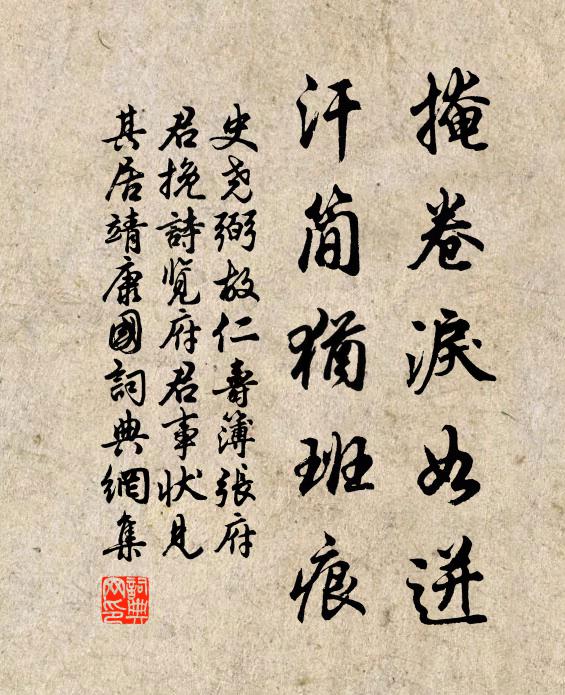 掩卷淚如迸
汗简猶班痕
史尧弼故仁壽簿張府
君挽詩览府君事状見
其居靖康國詞典網集
詞典网印